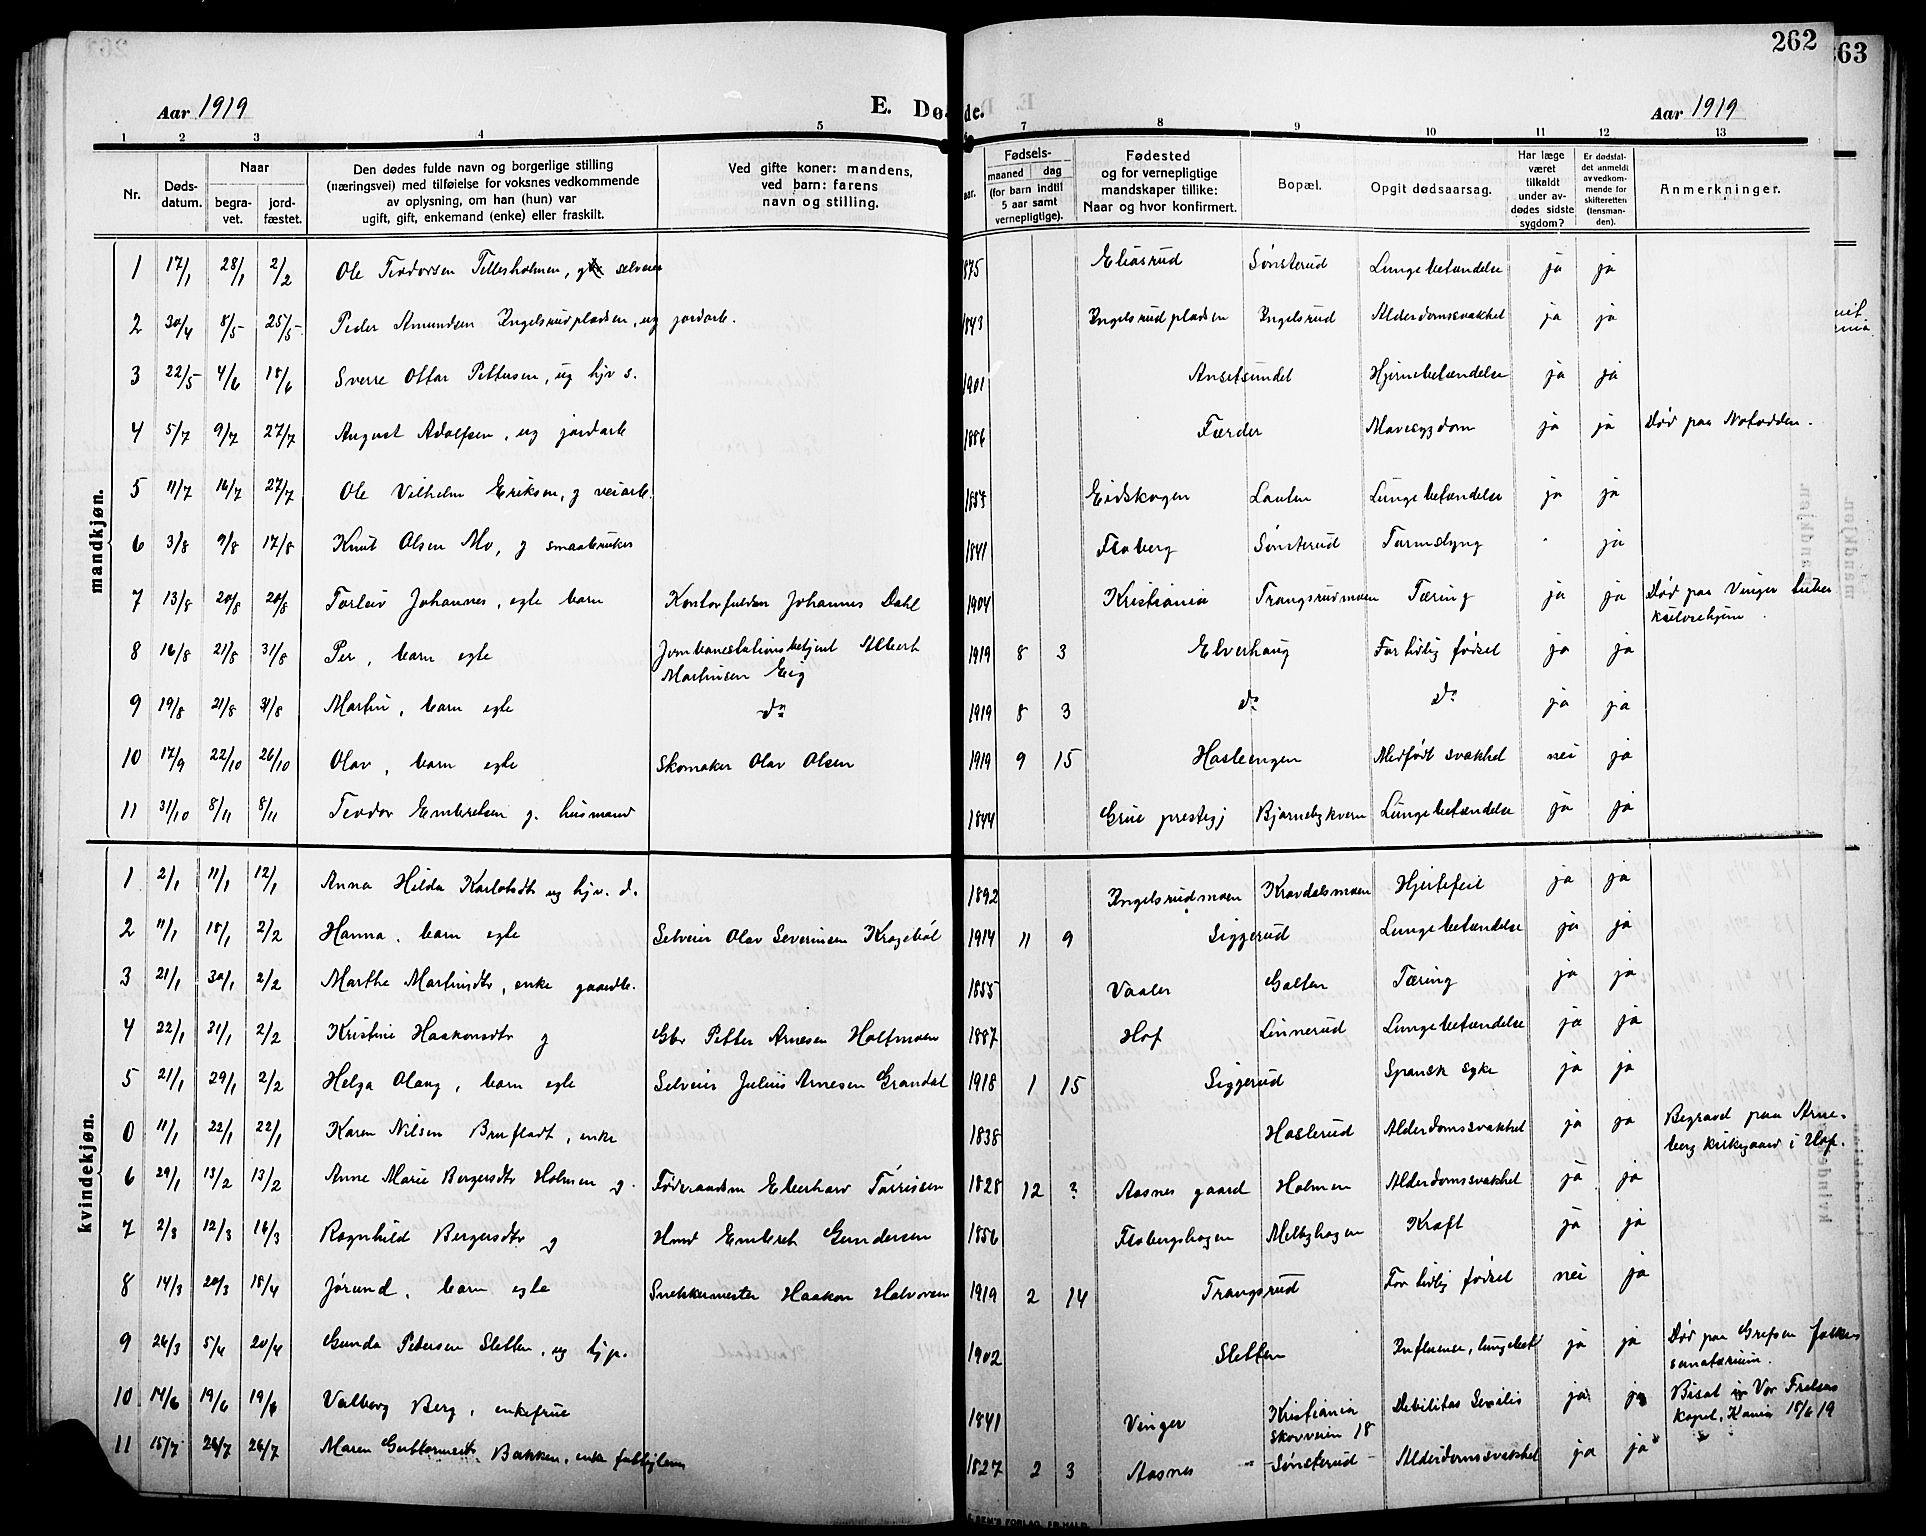 262
63
Aar 1919
E. Dø
de.
Aar 1919
1 2 3 4 5 7 8 9 10 11 12 13
Nr.
Døds-
datum.
Naar
begra-
vet.
jord-
fæstet.
Den dødes fulde navn og borgerlige stilling
(næringsvei) med tilføielse for voksnes vedkommende
av oplysning, om han (hun) var
ugift, gift, enkemand (enke) eller fraskilt.
Ved gifte koner: mandens,
ved barn: farens
navn og stilling.
Fødsels-
maaned dag
(for barn indtil
5 aar samt
vernepligtige).
Fødested
og for vernepligtige
mandskaper tillike:
Naar og hvor konfirmert.
Bopæl.
Opgit dødsaarsag.
Har læge
været
tilkaldt
under av-
dødes sidste
sygdom?
Er dødsfal-
det anmeldt
av vedkom-
mende for
skifteretten
(lensman-
den).
Anmerkninger.
mandkjøn.
1 17/1 28/1 2/2 Ole Teodorsen Tellesholmen, selveier 1875 Eliasrud Sønsterud Lungebetændelse ja ja
2 30/4 8/5 25/5 Peder Amundsen Engelsrudpladsen, ug jordarb. 1843 Engelsrudpladsen Engelsrud Alderdomssvakhet ja ja
3 22/5 4/6 18/6 Sverre Ottar Pettersen, ug hjv s. 1901 Ansetsundet Hjernebetændelse ja ja
4 5/7 9/7 27/7 August Adolfsen, ug jordarb 1886 Færder Mavesygdom ja ja Død paa Notodden.
5 11/7 16/7 27/7 Ole Vilhelm Eriksen, g veiarb. Eidskogen Lauten Lungebetændelse ja ja
6 3/8 9/8 17/8 Knut Olsen Mo, g smaabruker 1841 Flaberg Sønsterud Tarmslyng - ja
7 13/8 20/8 20/8 Torleiv Johannes, egte barn Kontorfuldm Johannes Dahl 1904 Kristiania Trangsrudmoen Tæring ja ja Død paa Vinger tuber
kulosehjem.
8 16/8 21/8 31/8 Per, barn egte Jernbanestationsbetjent Albert 1919 8 3 Elverhaug For tidlig fødsel ja ja
Martinsen Eig
9 19/8 21/8 31/8 Martin, barn egte do 1919 8 3 do do ja ja
10 17/9 22/10 26/10 Olav, barn egte Skomaker Olav Olsen 1919 9 15 Hasleengen Medfødt svakhet nei ja
11 31/10 8/11 8/11 Teodor Embretsen g. husmand 1844 Grue prestegj Bjørnebykvern Lungebetændelse ja ja
kvindekjøn.
1 2/1 11/1 12/1 Anna Hilda Karlsdtr ug hjv. d. 1892 Engelsrudmoen Kravdalsmoen Hjertefeil ja ja
2 11/1 18/1 2/2 Hanna, barn egte Selveier Olav Severinsen Kragebøl 1914 11 9 Siggerud Lungebetændelse ja ja
3 21/1 30/1 2/2 Marthe Martinsdtr, enke gaardbr. 1855 Vaaler Galten Tæring ja ja
4 22/1 31/1 2/2 Kristine Haakonsdtr g Gbr Petter Arnesen Holtmoen 1887 Hof Linnerud Lungebetændelse ja ja
5 21/1 29/1 2/2 Helga Olaug, barn egte Selveier Julius Arnesen Grandal 1918 1 15 Siggerud Spansk syke ja ja
0 11/1 22/1 22/1 Karen Nilsen Brufladt, enke 1838 Haslerud Alderdomssvakhet ja ja Begravd paa Arne-
berg kirkegaard i Hof.
6 29/1 13/2 13/2 Anne Marie Bergersdtr Holmen g. Føderaadsm Eberhard Tørrissen 1828 12 ? Aasnes gaard Holmen Alderdomssvakhet ja ja
7 2/3 12/3 16/3 Ragnhild Bergersdtr g Hmd Embret Gundersen 1856 Flabergshagen Melbyhagen Kræft ja ja
8 14/3 20/3 18/4 Jørund, barn egte Snekkermester Haakon Halvorsen 1919 2 14 Trangsrud For tidlig fødsel nei ja
9 26/3 5/4 20/4 Gunda Petersen Sletten, ug hjp. 1902 Sletten Influensa, lungebet ja ja Død paa Grefsen folke
sanatorium.
10 14/6 19/6 19/6 Valborg Berg, enkefrue 1841 Vinger Kristiania Debilitas Senilis ja ja Bisat i Vor Frelsers
Skovveien 18 kapel, Kania 18/6 19
11 15/7 26/7 26/7 Maren Guttormsdtr Bakken, enke fattiglem 1827 2 3 Aasnes Sønsterud Alderdomssvakhet ja ja